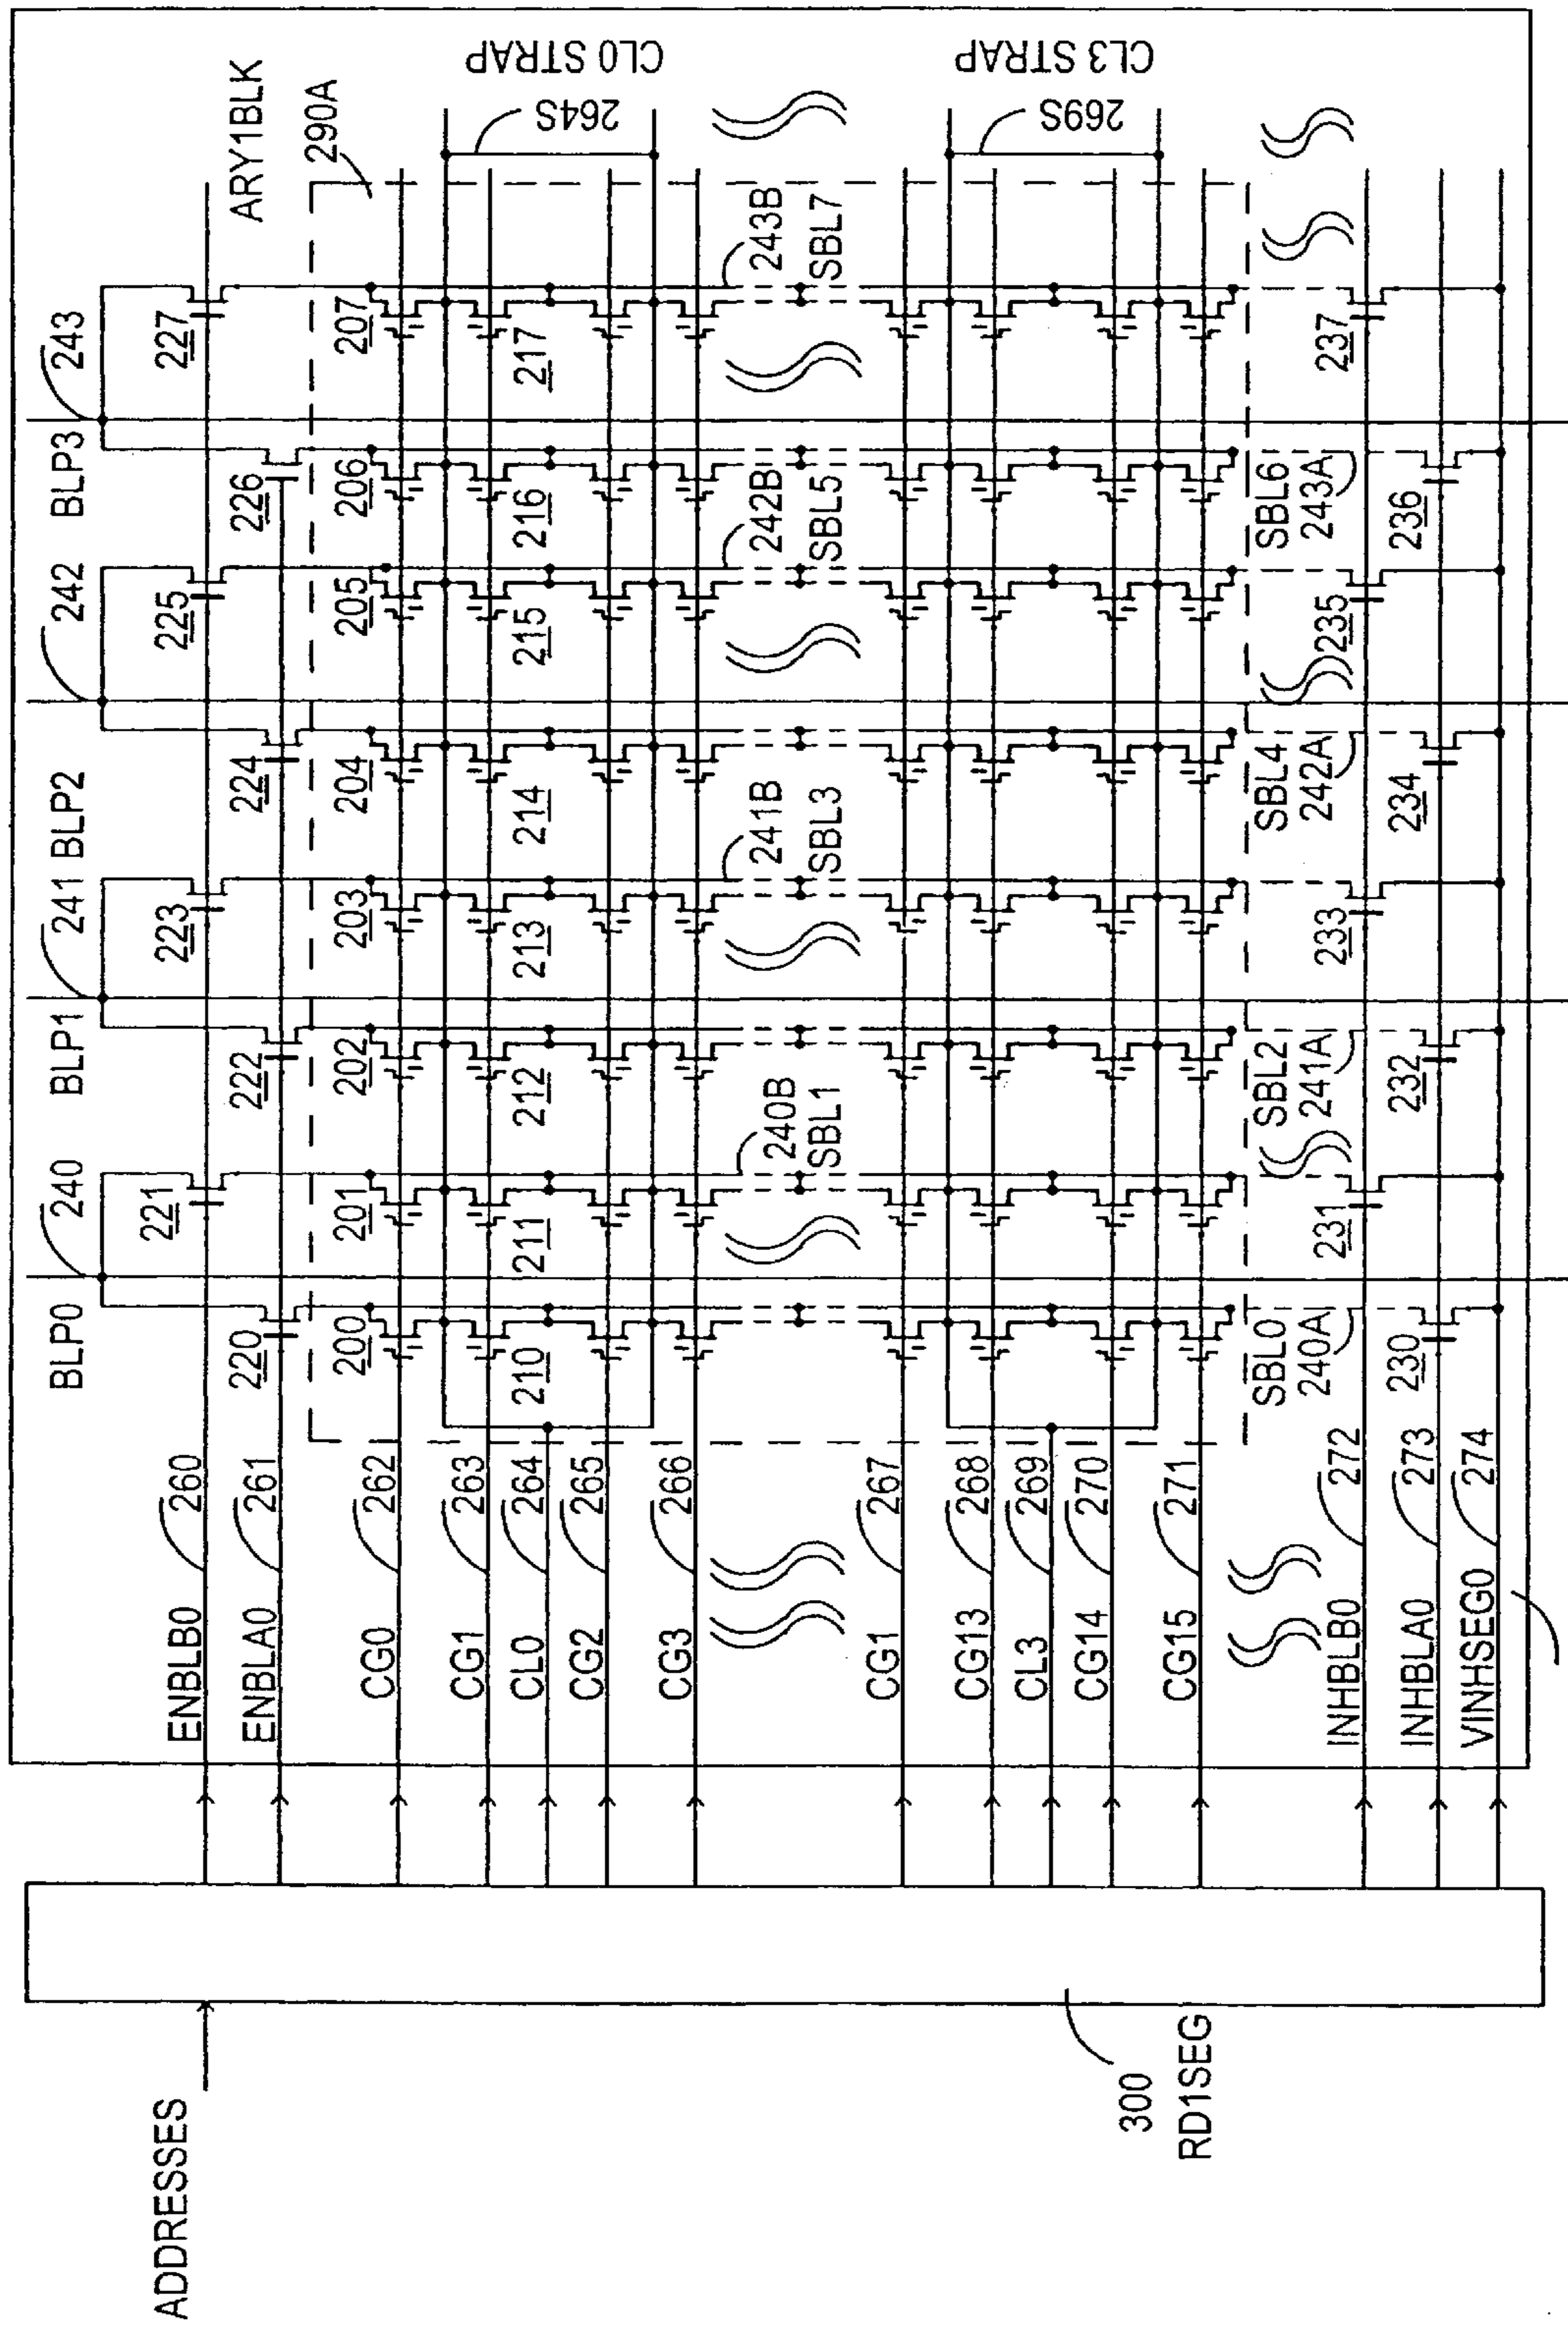 ADDRESSES
300
RD1SEG
ENBLB0 260
ENBLA0 261
CG0 262
CG1 263
CL0 264
CG2 265
CG3 266
CG1 267
CG13 268
CL3 269
CG14 270
CG15 271
INHBLB0 272
INHBLA0 273
VINHSEG0 274
BLP0 240
BLP1 241
BLP2 242
BLP3 243
220 221 222 223 224 225 226 227
ARY1BLK
290A
200 201 202 203 204 205 206 207
210 211 212 213 214 215 216 217
CL0 STRAP
264S
240B
SBL1
241B
SBL3
242B
SBL5
243B
SBL7
CL3 STRAP
269S
SBL0
240A
SBL2
241A
SBL4
242A
SBL6
243A
231 233 235 237
230 232 234 236